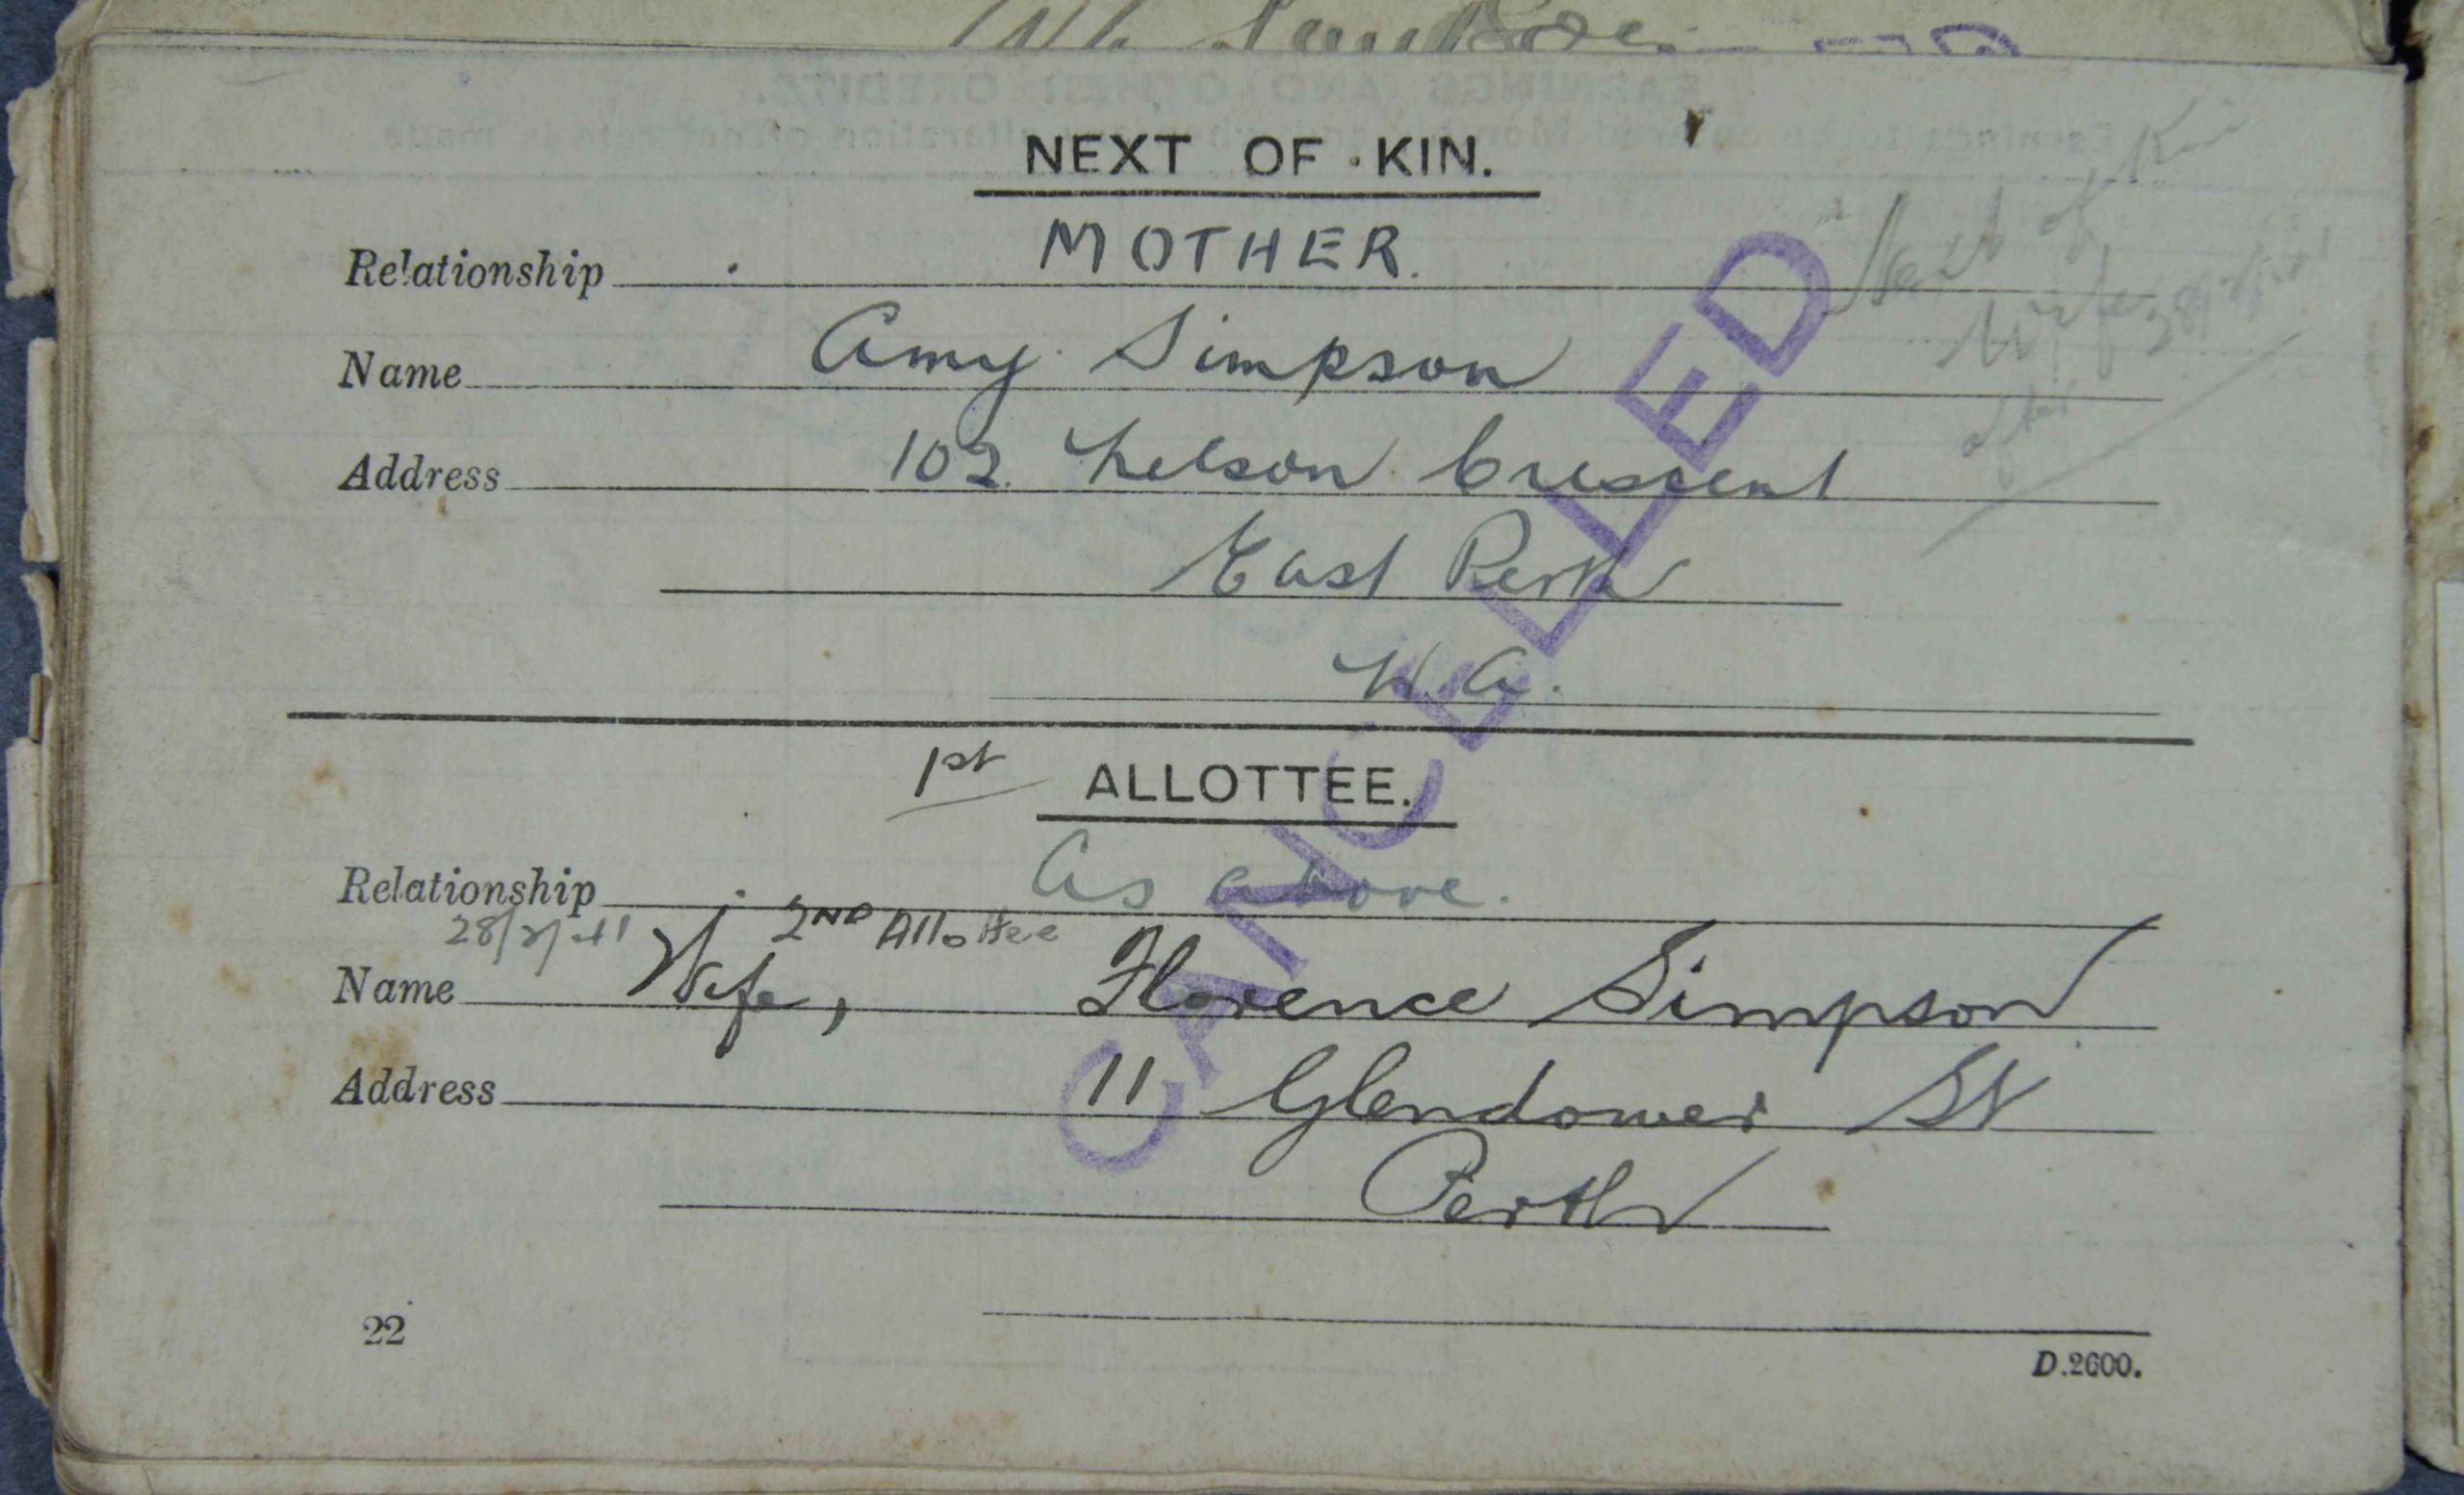 NEXT OF KIN.
Relationship MOTHER.
Name Amy Simpson
Address 102. Nelson Crescent
East Perth
W.A.
Next of Kin
Wife
after
1st ALLOTTEE.
Relationship As above.
28/2/41 2ND Allottee
Name Wife, Florence Simpson
Address 11 Glendower St
Perth
CANCELLED
22
D.2600.